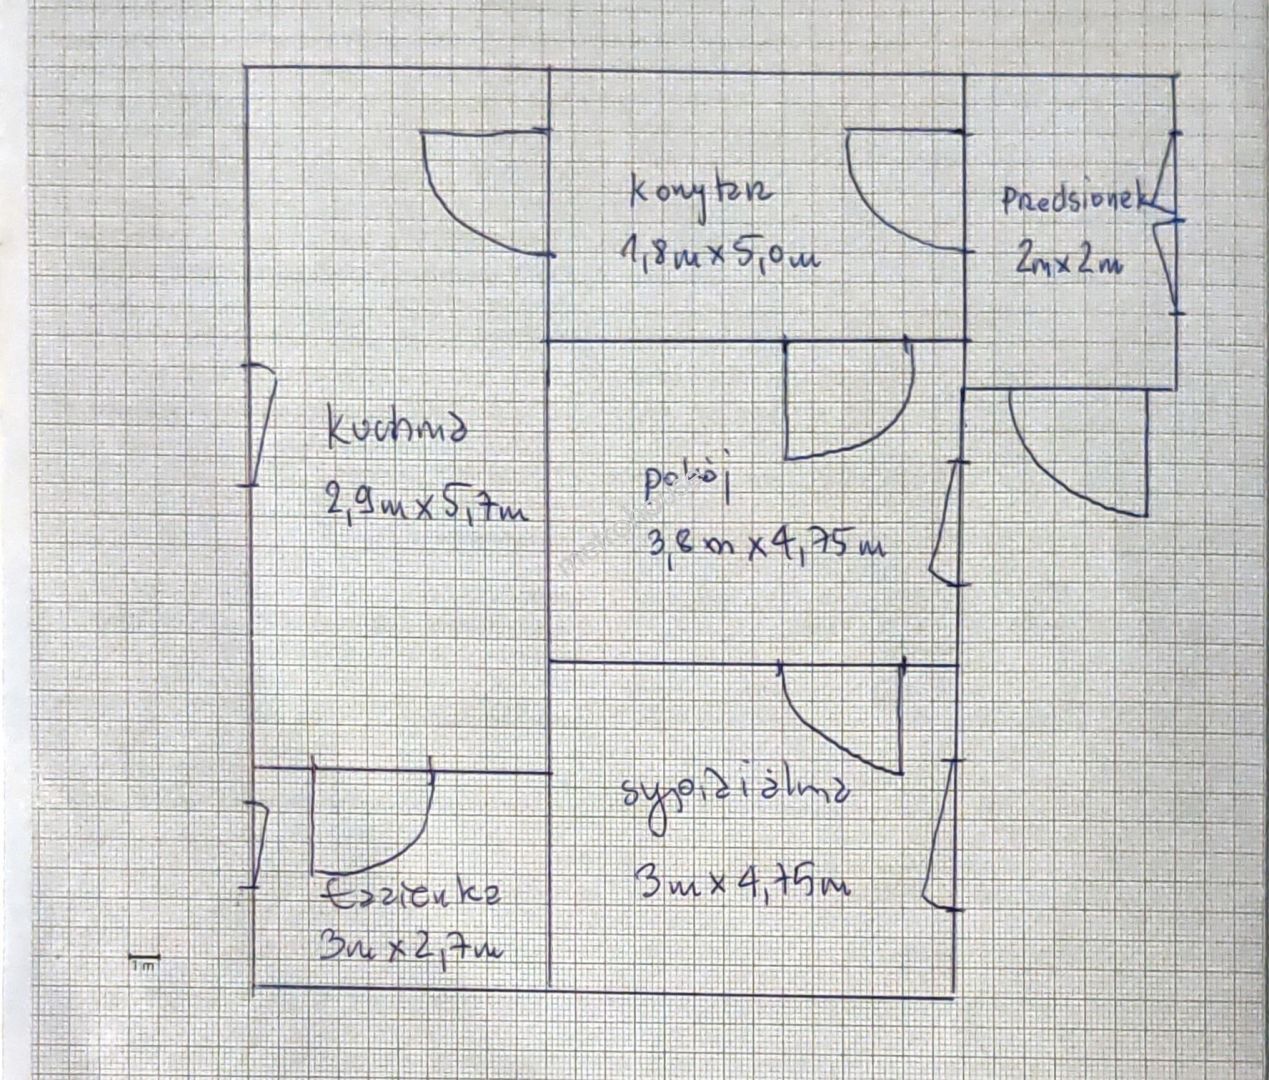 Korytarz
1,8m x 5,0m
Przedsionek
2m x 2m
Kuchnia
2,9m x 5,7m
pokój
3,8m x 4,75m
sypialnia
3m x 4,75m
Łazienka
3m x 2,7m
1m